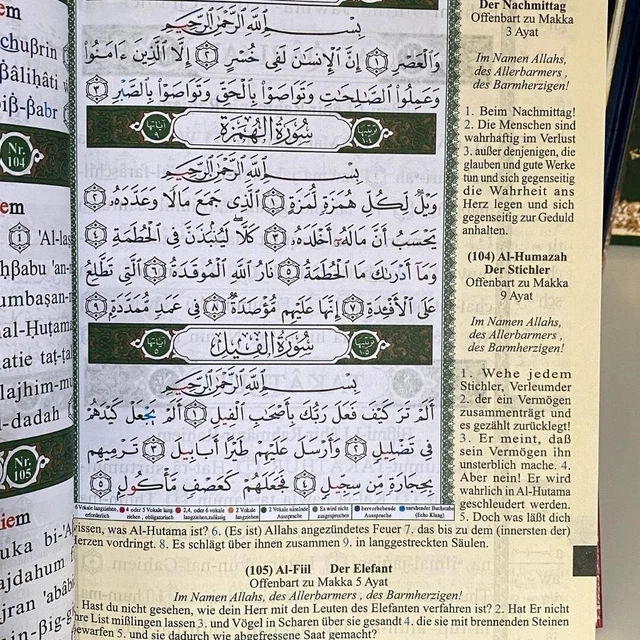 em
chußrin
ßâliḥâti
biß-ßabr
Nr.
104
em
'Al-
hßabu 'an-
umbaşan-
al-Ḥuṭama
tatie taṭ-ṭal
lajhim-mu
-dadah
Nr.
105
iem
uka bi-'A
ajdahum
jran 'abâb
in-ßig-
بِسْمِ اللَّهِ الرَّحْمَنِ الرَّحِيمِ
وَالْعَصْرِ ١ إِنَّ الْإِنسَانَ لَفِي خُسْرٍ ٢ إِلَّا الَّذِينَ ءَامَنُوا
وَعَمِلُوا الصَّالِحَاتِ وَتَوَاصَوْا بِالْحَقِّ وَتَوَاصَوْا بِالصَّبْرِ ٣
سُورَةُ الْهُمَزَةِ
بِسْمِ اللَّهِ الرَّحْمَنِ الرَّحِيمِ
وَيْلٌ لِّكُلِّ هُمَزَةٍ لُّمَزَةٍ ١ الَّذِي جَمَعَ مَالًا وَعَدَّدَهُ ٢
يَحْسَبُ أَنَّ مَالَهُ أَخْلَدَهُ ٣ كَلَّا لَيُنبَذَنَّ فِي الْحُطَمَةِ ٤
وَمَا أَدْرَاكَ مَا الْحُطَمَةُ ٥ نَارُ اللَّهِ الْمُوقَدَةُ ٦ الَّتِي تَطَّلِعُ
عَلَى الْأَفْئِدَةِ ٧ إِنَّهَا عَلَيْهِم مُّؤْصَدَةٌ ٨ فِي عَمَدٍ مُّمَدَّدَةٍ ٩
سُورَةُ الْفِيلِ
بِسْمِ اللَّهِ الرَّحْمَنِ الرَّحِيمِ
أَلَمْ تَرَ كَيْفَ فَعَلَ رَبُّكَ بِأَصْحَابِ الْفِيلِ ١ أَلَمْ يَجْعَلْ كَيْدَهُمْ
فِي تَضْلِيلٍ ٢ وَأَرْسَلَ عَلَيْهِمْ طَيْرًا أَبَابِيلَ ٣ تَرْمِيهِم
بِحِجَارَةٍ مِّن سِجِّيلٍ ٤ فَجَعَلَهُمْ كَعَصْفٍ مَّأْكُولٍ ٥
6 Vokale langziehen, erforderlich
4 oder 5 Vokale lang ziehen , obligatorisch
2,4, oder 6 vokale langziehen,zulässig
2 Vokale langziehen
2 Vokale näselnde Aussprache
Es wird nicht ausgesprochen
hervorhebende Aussprache
Der Nachmittag
Offenbart zu Makka
3 Ayat
Im Namen Allahs,
des Allerbarmers ,
des Barmherzigen!
1. Beim Nachmittag!
2. Die Menschen sind
wahrhaftig im Verlust
3. außer denjenigen, die
glauben und gute Werke
tun und sich gegenseitig
die Wahrheit ans
Herz legen und sich
gegenseitig zur Geduld
anhalten.
(104) Al-Humazah
Der Stichler
Offenbart zu Makka
9 Ayat
Im Namen Allahs,
des Allerbarmers ,
des Barmherzigen!
1. Wehe jedem
Stichler, Verleumder
2. der ein Vermögen
zusammenträgt und
es gezählt zurücklegt!
3. Er meint, daß
sein Vermögen ihn
unsterblich mache. 4.
Aber nein! Er wird
wahrlich in Al-Hutama
geschleudert werden.
5. Doch was läßt dich
wissen, was Al-Hutama ist? 6. (Es ist) Allahs angezündetes Feuer 7. das bis zu dem (innersten der)
Herzen vordringt. 8. Es schlägt über ihnen zusammen 9. in langgestreckten Säulen.
(105) Al-Fiil Der Elefant
Offenbart zu Makka 5 Ayat
Im Namen Allahs, des Allerbarmers , des Barmherzigen!
. Hast du nicht gesehen, wie dein Herr mit den Leuten des Elefanten verfahren ist? 2. Hat Er nicht
hre List mißlingen lassen 3. und Vögel in Scharen über sie gesandt 4. die sie mit brennenden Steinen
bewarfen 5. und sie dadurch wie abgefressene Saat gemacht?